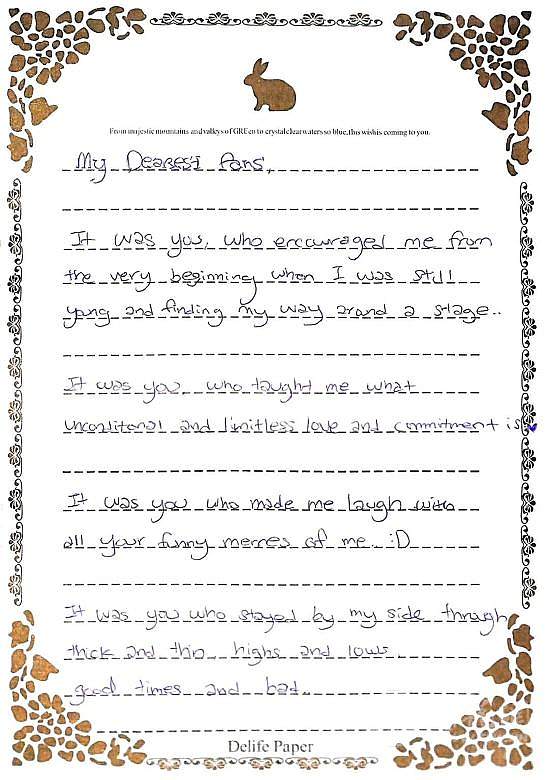 From majestic mountains and valleys of GREen to crystal clear waters so blue, this wish is coming to you.
My Dearest Fans,
It was you, who encouraged me from
the very beginning when I was still
young and finding my way around a stage..
It was you, who taught me what
unconditonal and limitless love and commitment is
It was you who made me laugh with
all your funny memes of me.. :D
It was you who stayed by my side through
thick and thin highs and lows,
good times and bad..
Delife Paper